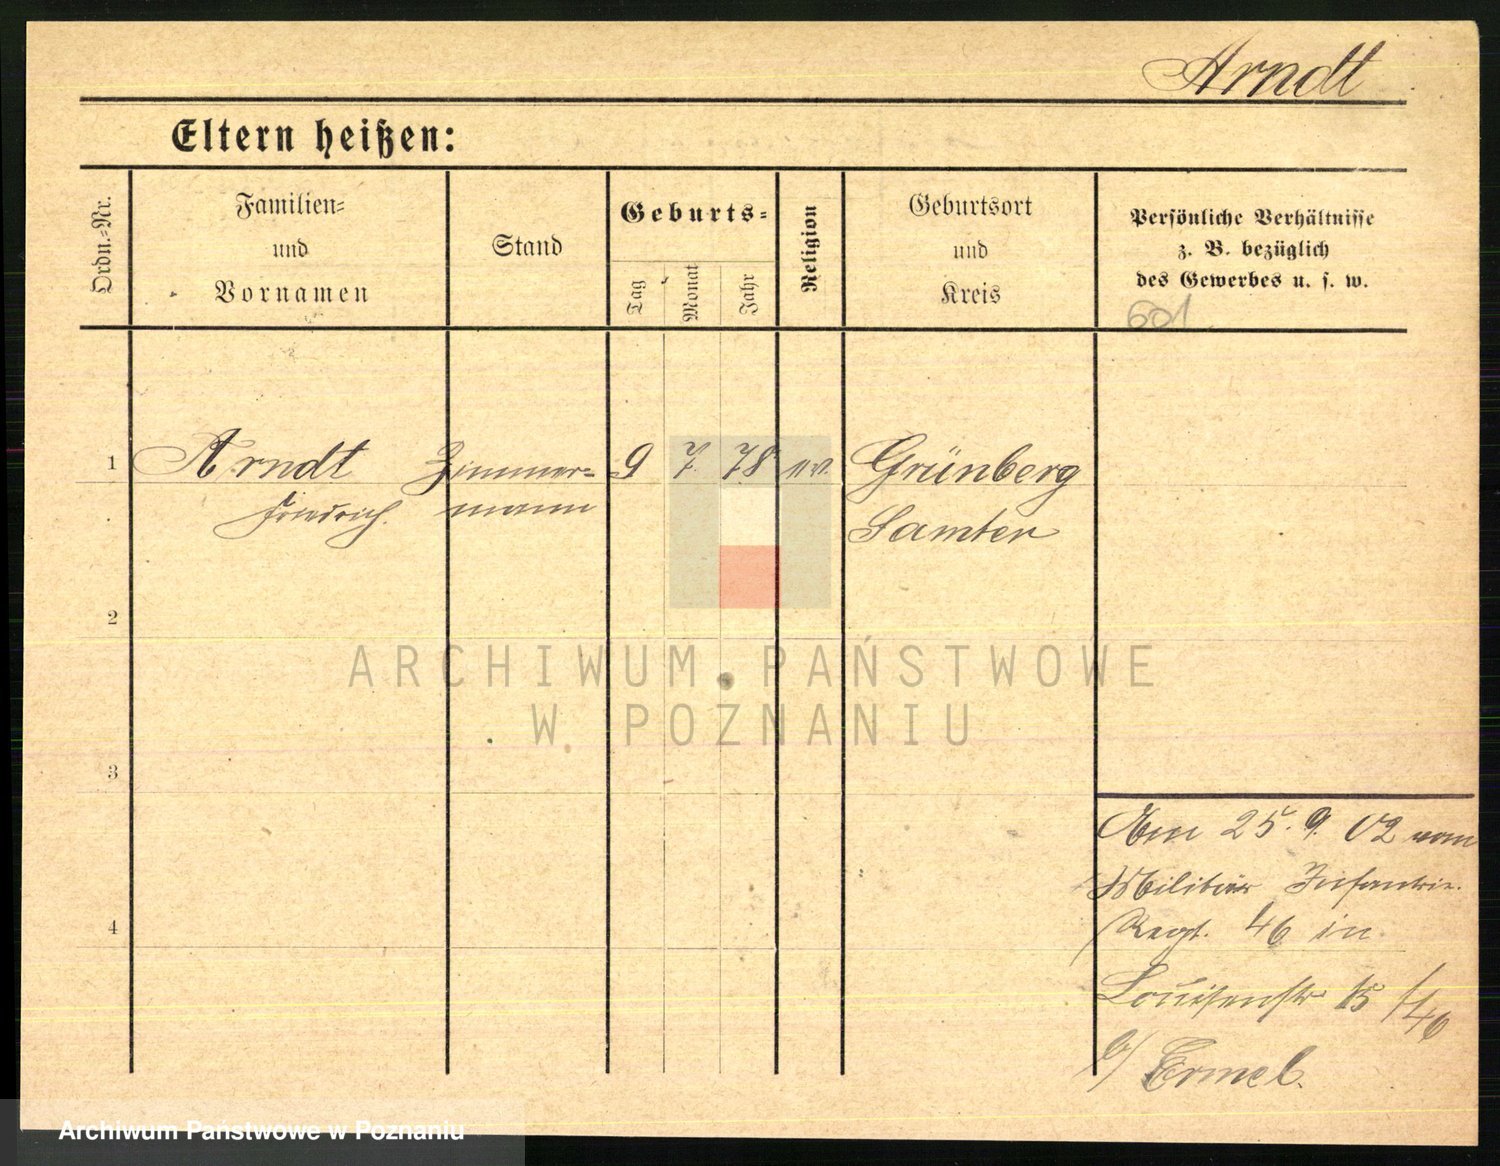 Arndt
Eltern heißen:
Ordn.-Nr.
Familien-
und
Vornamen
Stand
Geburts-
Tag
Monat
Jahr
Religion
Geburtsort
und
Kreis
Persönliche Verhältnisse
z. B. bezüglich
des Gewerbes u. s. w.
601
1 Arndt Zimmer- 9 7. 78 ev. Grünberg
Friedrich. mann Samter
2
ARCHIWUM PAŃSTWOWE
W POZNANIU
3
Am 25. 9. 02 vom
Militär Infantrie.
4 Regt. 46 in
Louisenstr 15
b/ Ermel.
Archiwum Państwowe w Poznaniu